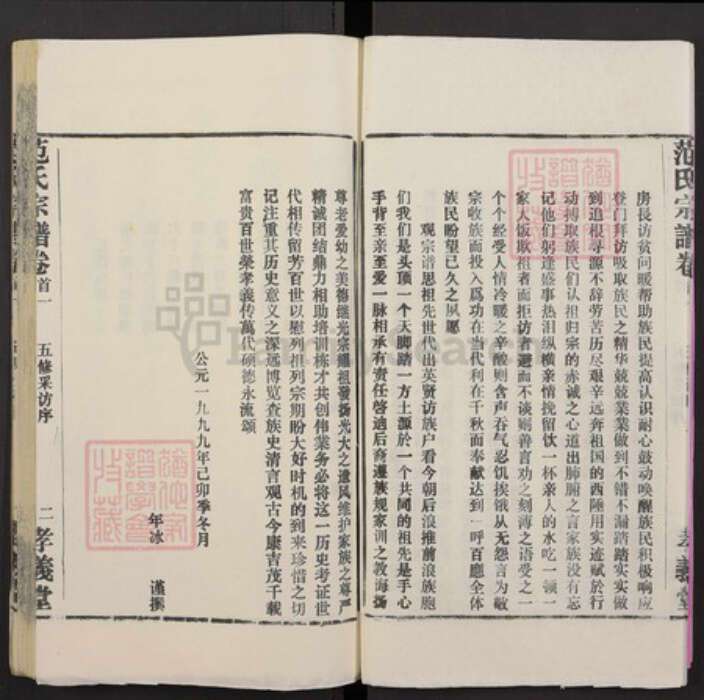 范氏宗譜卷
房長访贫问暖帮助族民提高认识耐心鼓动唤醒族民积极响应
登门拜访吸取族民之精华兢兢業業做到不错不漏踏踏实实做
到追根寻源不辞劳苦历尽艰辛远奔祖国的西陲用实迹赋於行
动搏取族民们认祖归宗的赤诚之心道出肺腑之言家族没有忘
记他们躬逢盛事热泪纵横亲情挽留饮一杯亲人的水吃一顿一
家人饭欺祖者而拒访者避而不谈则善言劝之刻薄之语受之一
个个经受人情冷暖之辛酸则含声吞气忍饥挨饿从无怨言为敬
宗收族而投入為功在当代利在千秋而奉献达到一呼百應全体
族民盼望已久之夙愿
观宗谱思祖先世代出英贤访族户看今朝后浪推前浪族胞
们我们是头顶一个天脚踏一方土源於一个共同的祖先是手心
手背至亲至爱一脉相承有责任啓迪后裔遵族规家训之教诲扬
尊老爱幼之美德继光宗耀祖發扬光大之遗风维护家族之尊严
精诚团结鼎力相助培训栋才共创伟業务必将这一历史考证世
代相传留芳百世以慰列祖列宗期盼大好时机的到来珍惜之切
记注重其历史意义之深远博览查族史清言观古今康吉茂千載
富贵百世榮孝義传萬代硕德永流颂
公元一九九九年己卯季冬月
年冰 谨撰
范氏宗譜卷首一
五修采访序
二
孝義堂
FamilySearch